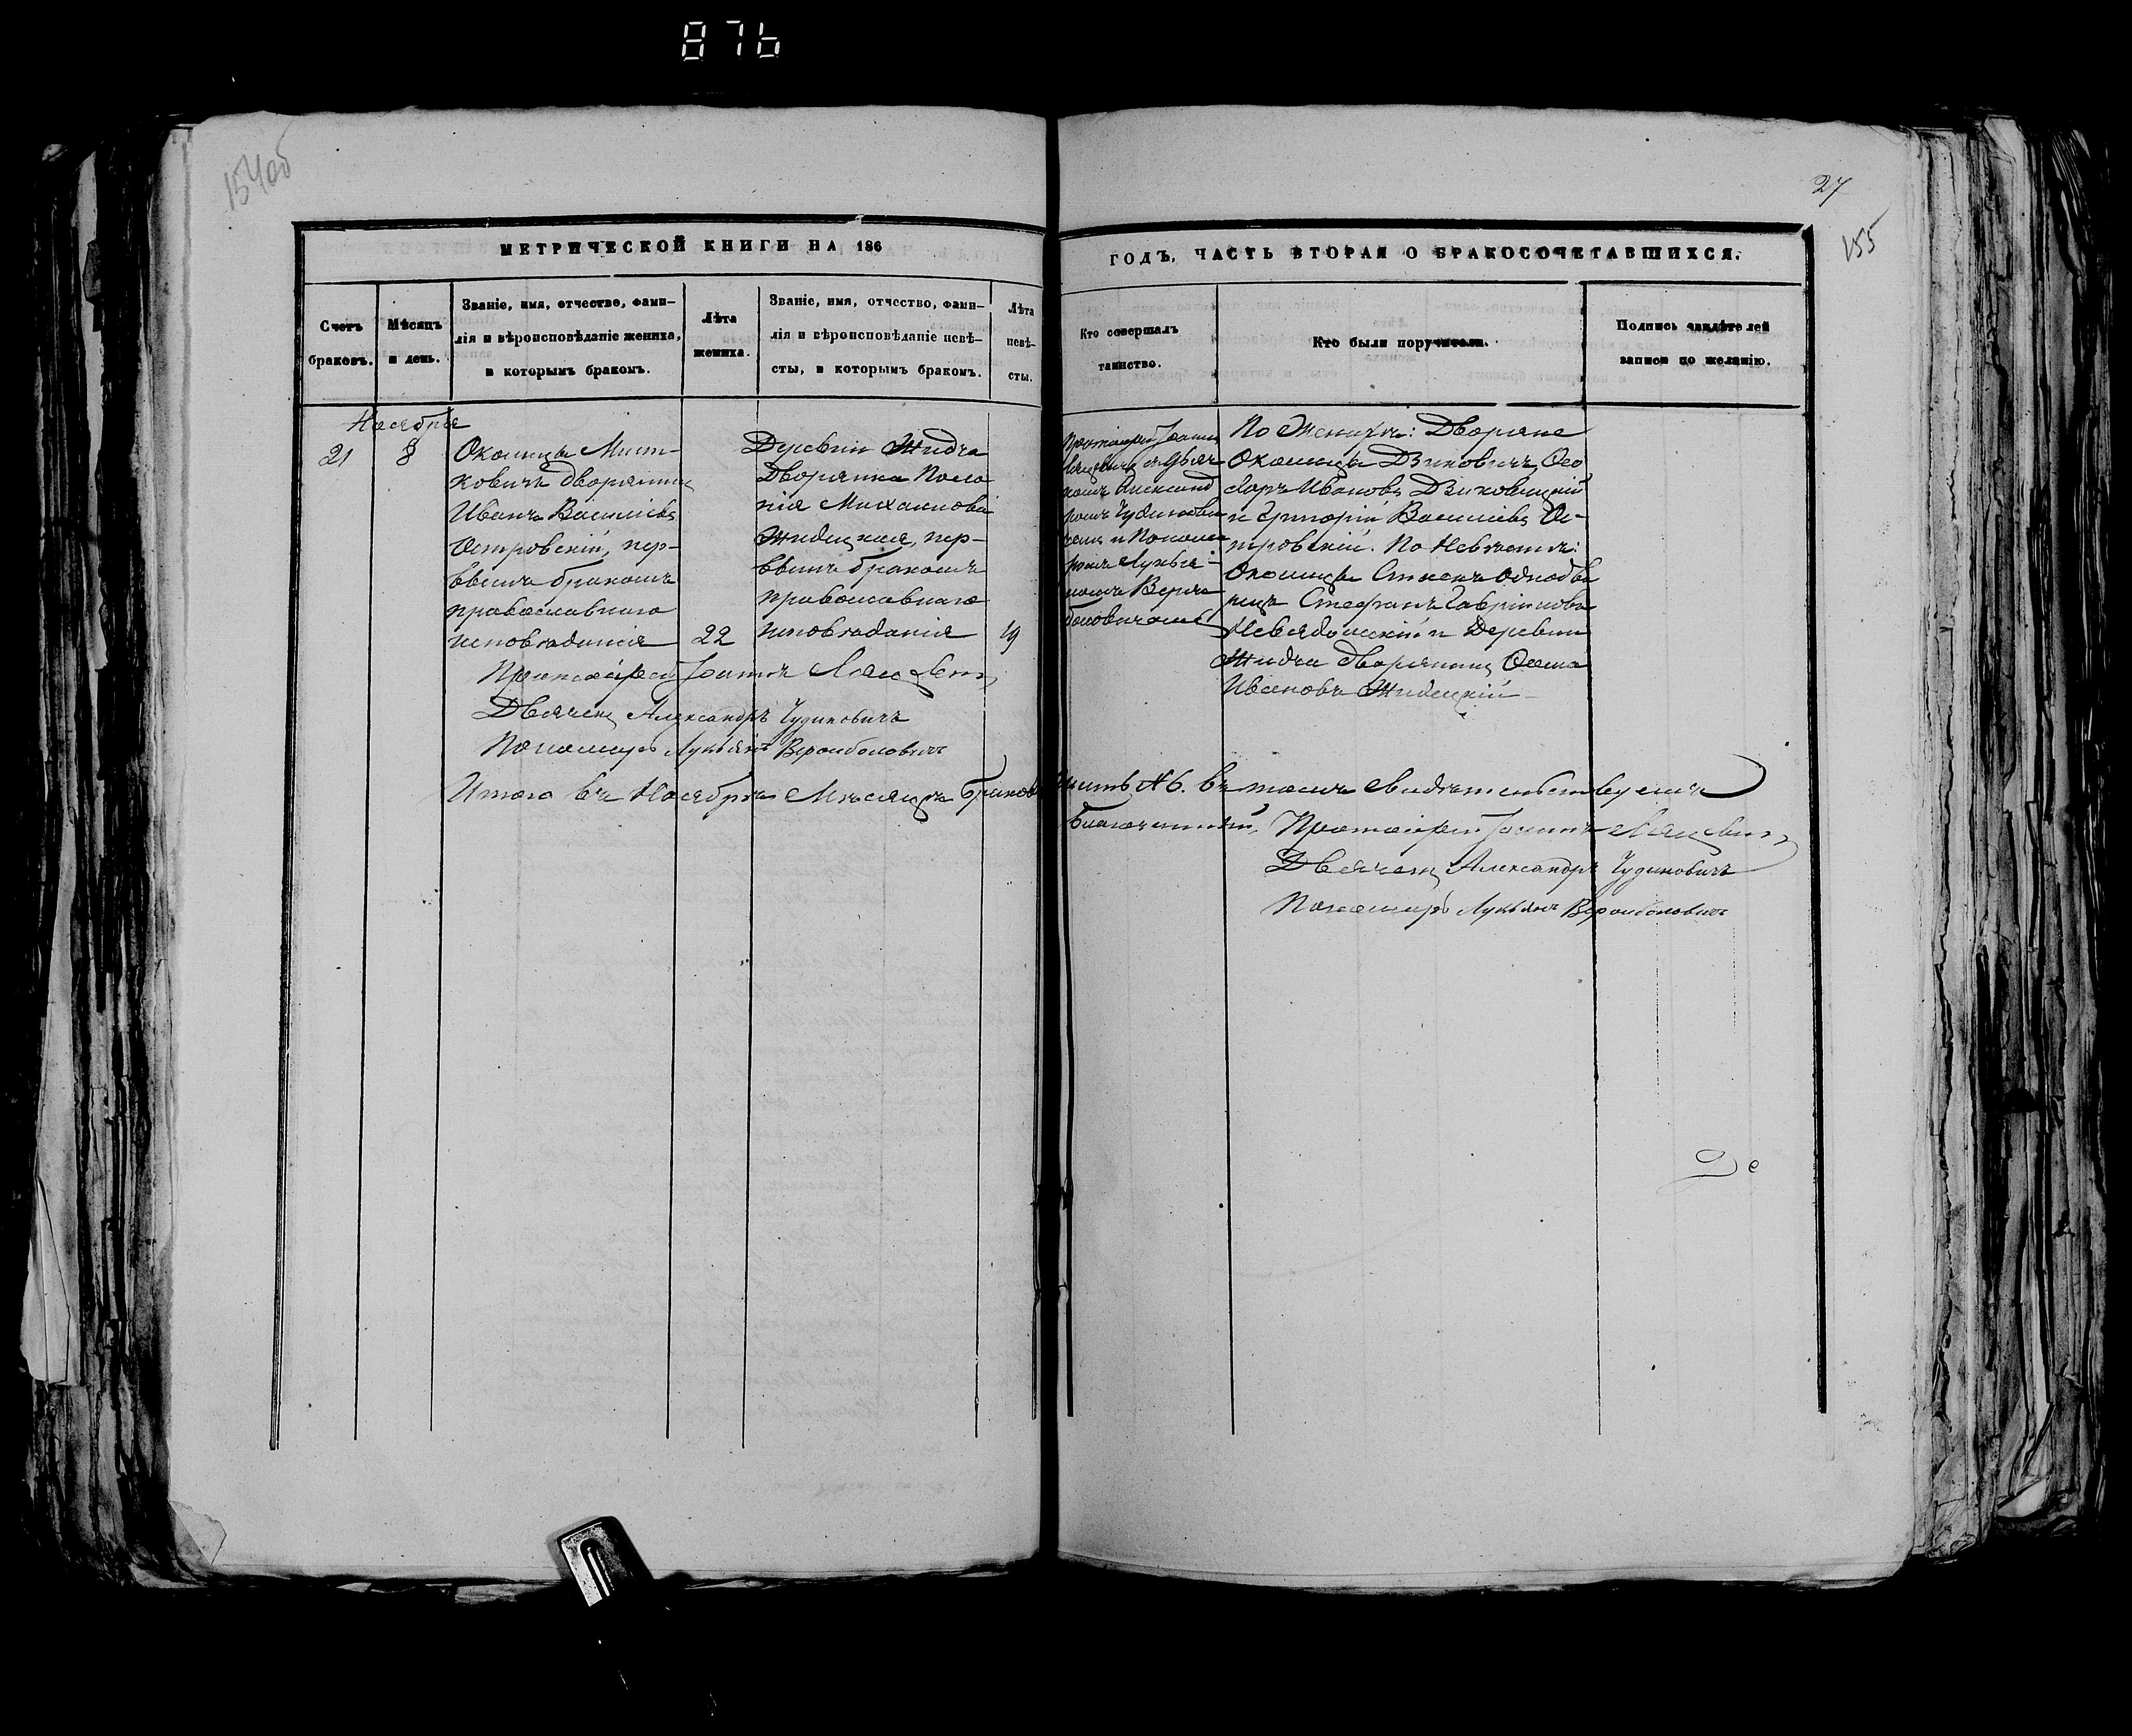 876
154об
27
155
МЕТРИЧЕСКОЙ КНИГИ НА 186
ГОДЪ, ЧАСТЬ ВТОРАЯ О БРАКОСОЧЕТАВШИХСЯ.
Счетъ
браковъ.
Мѣсяцъ
и день.
Званіе, имя, отчество, фами-
лія и вѣроисповѣданіе жениха,
и которымъ бракомъ.
Лѣта
жениха.
Званіе, имя, отчество, фами-
лія и вѣроисповѣданіе невѣ-
сты, и которымъ бракомъ.
Лѣта
невѣ-
сты.
Кто совершалъ
таинство.
Кто были поручители.
Подпись свидѣтелей
записи по желанію.
Ноября
21
8
Околицы Мит-
ковичъ дворянинъ
Иванъ Васильевъ
Островскій, пер-
ввымъ бракомъ
православнаго
исповѣданія
22
Деревни Жидча
Дворянка Поло
нія Михаилова
Жидецкая, пер-
ввымъ бракомъ
православнаго
исповѣданія
19
Протоіерей Іоаннъ
съ Дьяч
комъ Александ
ромъ Чудинови
чемъ и Понома
ремъ Лукья-
номъ Верим
боловичемъ
По Женихѣ: Дворяне
Околицы Дзиковичъ, Ѳео
доръ Ивановъ Дзиковицкій
и Григорій Васильевъ Ос-
тровскій. По Невѣстѣ:
Околицы Однодво
рецъ Стефанъ Гавріиловъ
и Деревни
Жидча дворянинъ Ѳома
Ивановъ Жидецкій
Протоіерей Іоаннъ
Дьячекъ Александръ Чудиновичъ
Пономарь Лукьянъ
Итого въ Ноябрѣ Мѣсяцѣ браковъ шесть № 6. Въ томъ свидѣтельствуемъ
Благочинный, Протоіерей Іоаннъ
Дьячекъ Александръ Чудиновичъ
Пономарь Лукьянъ